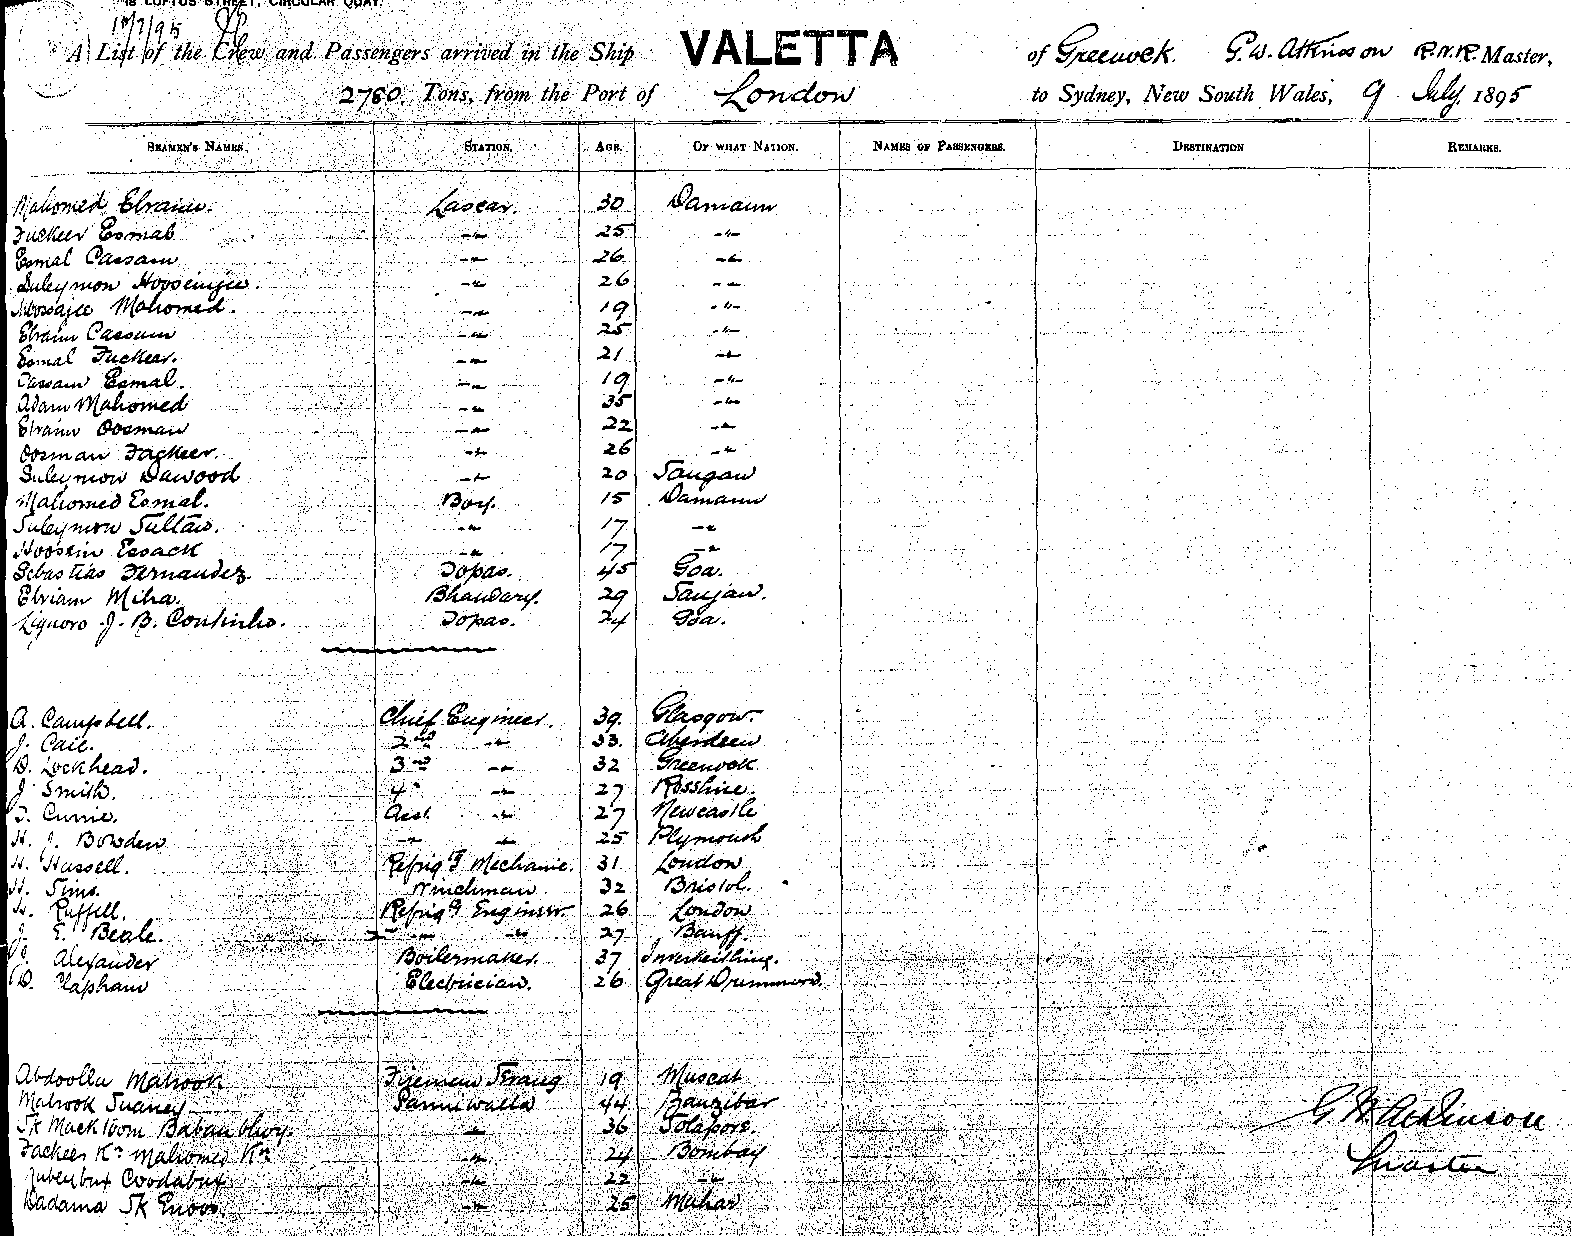 18 LOFTUS STREET, CIRCULAR QUAY.
A List of the Crew and Passengers arrived in the Ship VALETTA of Greenock. G. W. Atkinson R.N.R. Master,
2760 Tons, from the Port of London to Sydney, New South Wales, 9 July, 1895
SEAMEN'S NAMES. STATION. AGE. OF WHAT NATION. NAMES OF PASSENGERS. DESTINATION REMARKS.
Mahomed Ebraim. Lascar. 30 Damaun
Fuckeer Esmal -"- 25 -"-
Esmal Cassam -"- 26 -"-
Suleymon Hoosenjee. -"- 26 -"-
Moosajee Mahomed. -"- 19 -"-
Ebraim Cassum -"- 25 -"-
Esmal Fuckeer. -"- 21 -"-
Cassam Esmal. -"- 19 -"-
Adam Mahomed -"- 35 -"-
Ebraim Oosman -"- 22 -"-
Oosman Fackeer. -"- 26 -"-
Suleymon Dawood -"- 20 Saugan
Mahomed Esmal. Boy. 15 Damaun
Suleymon Sultan. -"- 17 -"-
Hoosein Essack -"- 17 -"-
Sebastias Fernandez Topas. 45 Goa.
Ebriam Miha. Bhandary. 29 Saujan.
Liguoro J. B. Coutinho. Topas. 24 Goa.
A. Campbell. Chief Engineer. 39. Glasgow.
J. Caie. 2nd -"- 33. Aberdeen
D. Lockhead. 3rd -"- 32 Greenock
J. Smith. 4" -"- 27 Rosshire.
T. Currie. Asst. -"- 27 Newcastle
H. J. Bowden -"- -"- 25 Plymouth
H. Hussell. Refrig'g Mechanic. 31 London
H. Sims. Winchman. 32 Bristol.
H. Ruffell. Refrig'g Engineer. 26 London
J. E. Beale. -"- -"- 27 Banff.
J. Alexander Boilermaker. 37 Inverkeithing.
D. Clapham Electrician. 26 Great Drummond.
Abdoolla Mabrook Firemen Serang 19 Muscat
Mabrook Juaney Panniwalla 44 Zanzibar
Sk Mackloom Baban -"- 36 Solapore.
Fackeer Kn Mahomed Kn -"- 24 Bombay
Coodabux -"- 22 -"-
Badama Sk Enoos. -"- 25 Mahar
G W Atkinson
Master